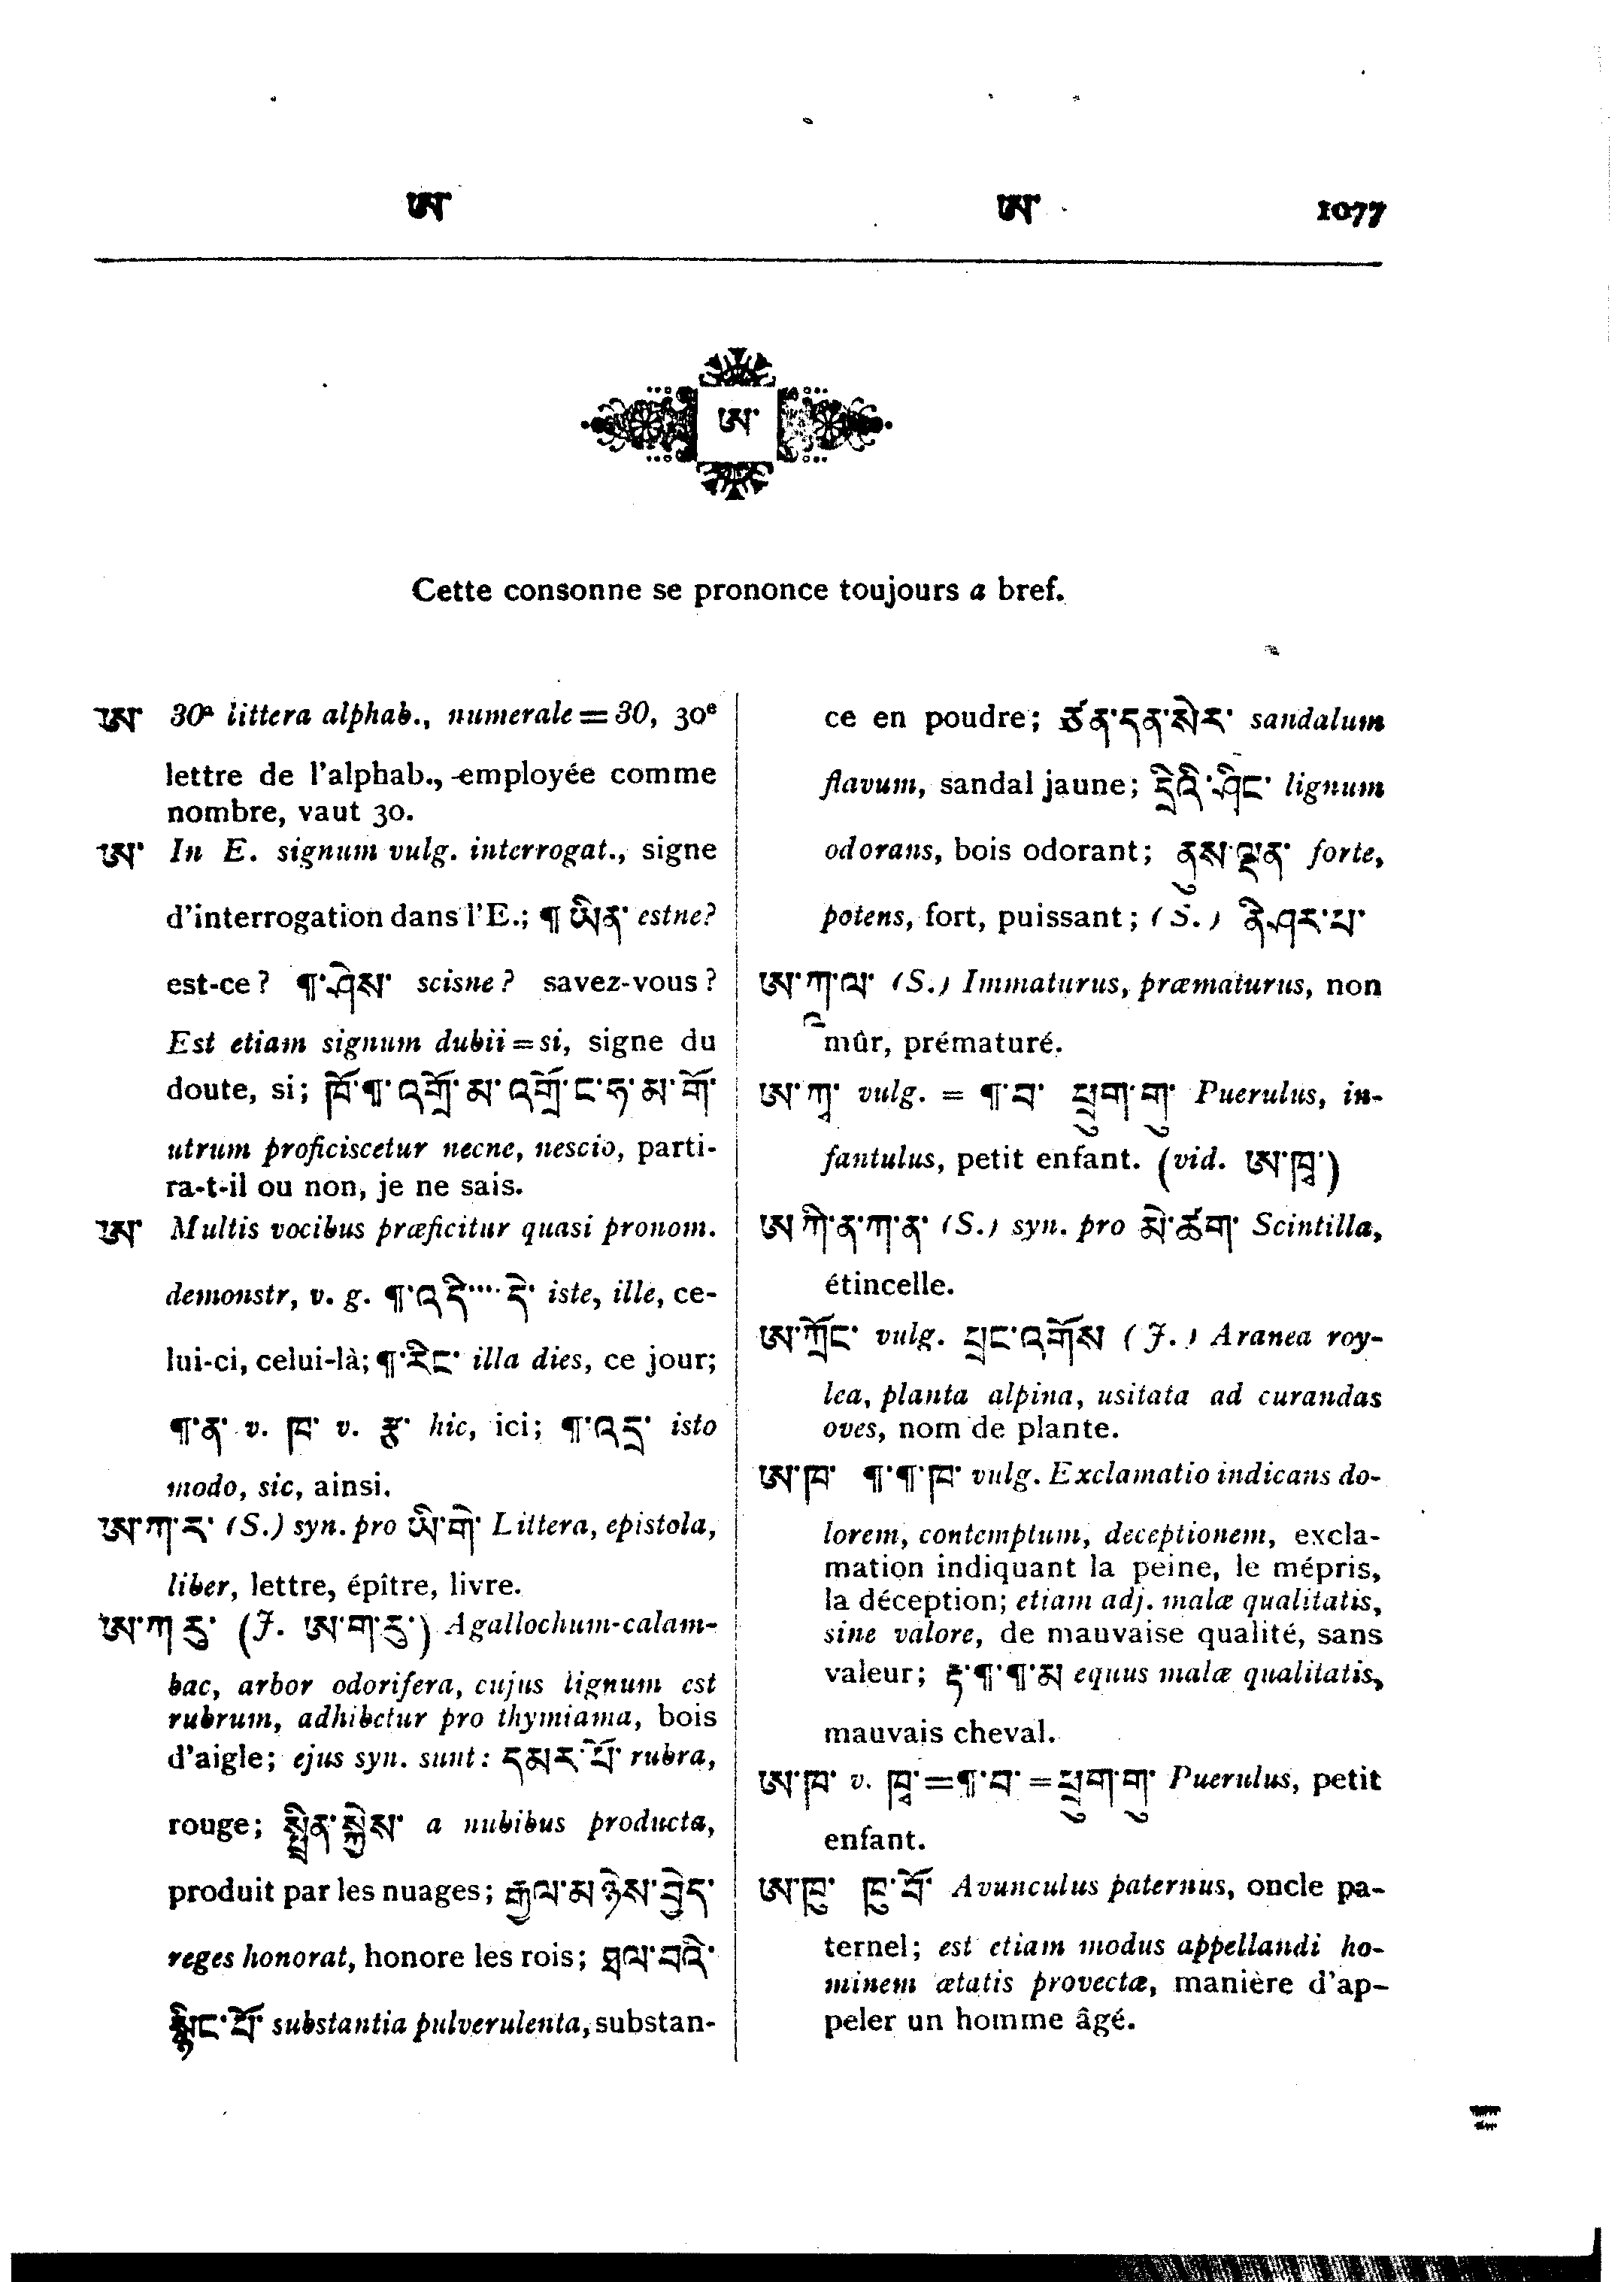 ཨ་ ཨ་ 1077
ཨ་
Cette consonne se prononce toujours a bref.
ཨ་ 30ª littera alphab., numerale = 30, 30e
lettre de l'alphab., employée comme
nombre, vaut 30.
ཨ་ In E. signum vulg. interrogat., signe
d'interrogation dans l'E.; ཨ ཡིན་ estne?
est-ce? ཨ་ཤེས་ scisne? savez-vous?
Est etiam signum dubii = si, signe du
doute, si; ཁོ་ཨ་འགྲོ་མ་འགྲོ་ང་ཧ་མ་གོ་
utrum proficiscetur necne, nescio, parti-
ra-t-il ou non, je ne sais.
ཨ་ Multis vocibus præficitur quasi pronom.
demonstr, v. g. ཨ་འདི་....དེ་ iste, ille, ce-
lui-ci, celui-là; ཨ་རིང་ illa dies, ce jour;
ཨ་ན་ v. ཁ་ v. ཙ་ hic, ici; ཨ་འདྲ་ isto
modo, sic, ainsi.
ཨ་ཀ་ར་ (S.) syn. pro ཡི་གེ་ Littera, epistola,
liber, lettre, épître, livre.
ཨ་ཀ་རུ་ (J. ཨ་ག་རུ་) Agallochum-calam-
bac, arbor odorifera, cujus lignum est
rubrum, adhibetur pro thymiama, bois
d'aigle; ejus syn. sunt: དམར་པོ་ rubra,
rouge; སྤྲིན་སྐྱེས་ a nubibus producta,
produit par les nuages; རྒྱལ་མཉེས་བྱེད་
reges honorat, honore les rois; ཐལ་བའི་
སྙིང་པོ་ substantia pulverulenta, substan-
ce en poudre; ཙནྡན་སེར་ sandalum
flavum, sandal jaune; དྲིའི་ཤིང་ lignum
odorans, bois odorant; ནུས་ལྡན་ forte,
potens, fort, puissant; (S.) ནེ་ཤར་པ་
ཨ་ཀཱ་ལ་ (S.) Immaturus, præmaturus, non
mûr, prématuré.
ཨ་ཀྭ་ vulg. = ཨ་བ་ ཕྲུག་གུ་ Puerulus, in-
fantulus, petit enfant. (vid. ཨ་ཁྭ་)
ཨ ཀི་ན་ཀ་ན་ (S.) syn. pro མེ་ཚག་ Scintilla,
étincelle.
ཨ་ཀྲོང་ vulg. སྲང་འགོས (J.) Aranea roy-
lea, planta alpina, usitata ad curandas
oves, nom de plante.
ཨ་ཁ ཨ་ཨ་ཁ་ vulg. Exclamatio indicans do-
lorem, contemptum, deceptionem, excla-
mation indiquant la peine, le mépris,
la déception; etiam adj. malæ qualitatis,
sine valore, de mauvaise qualité, sans
valeur; རྟ་ཨ་ཨ་མ equus malæ qualitatis,
mauvais cheval.
ཨ་ཁ་ v. ཁྭ་=ཨ་བ་=ཕྲུག་གུ་ Puerulus, petit
enfant.
ཨ་ཁུ་ ཁུ་བོ་ Avunculus paternus, oncle pa-
ternel; est etiam modus appellandi ho-
minem ætatis provectæ, manière d'ap-
peler un homme âgé.